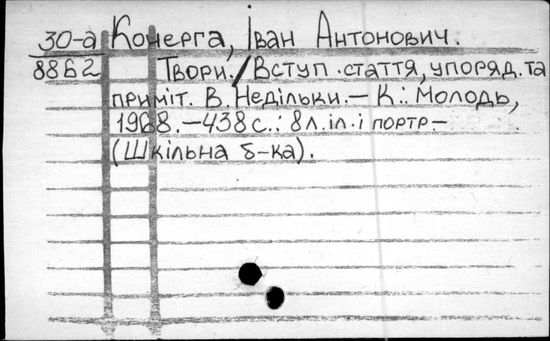 30-а Кочерга, Іван Антонович.
8862 Твори./Вступ.стаття, упоряд.та
приміт. В. Недільки.— К.: Молодь,
1968.—438с.: 8л.іл.і портр—
(Шкільна б-ка).